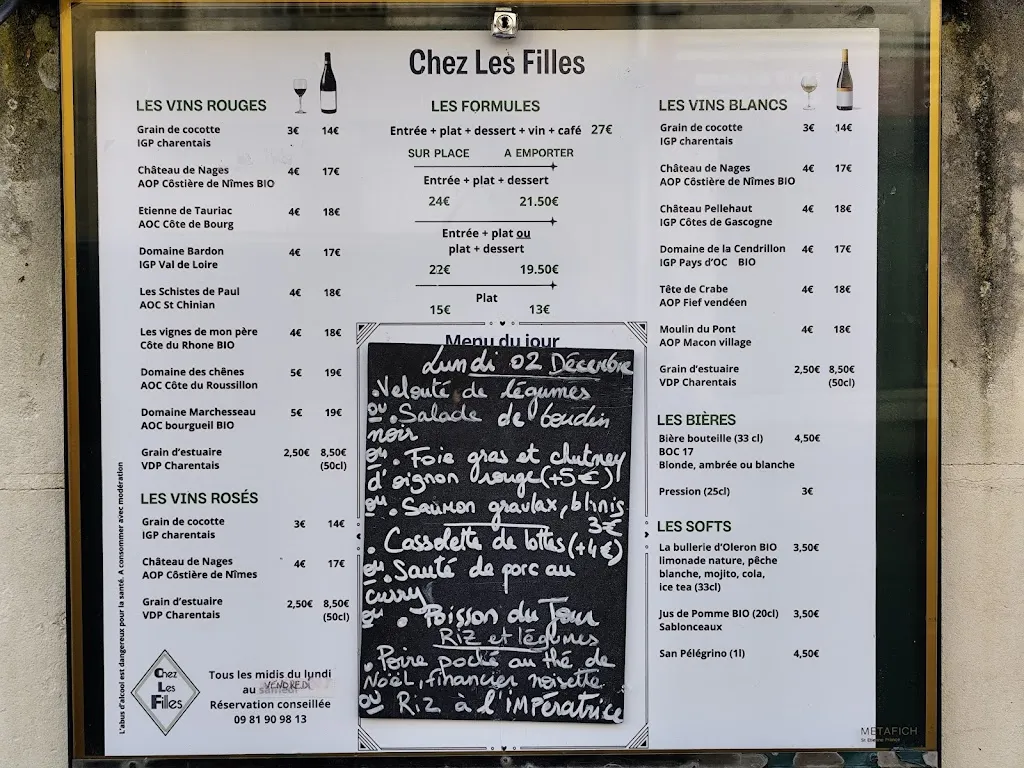 Chez Les Filles
LES VINS ROUGES
Grain de cocotte 3€ 14€
IGP charentais
Château de Nages 4€ 17€
AOP Côstière de Nîmes BIO
Etienne de Tauriac 4€ 18€
AOC Côte de Bourg
Domaine Bardon 4€ 17€
IGP Val de Loire
Les Schistes de Paul 4€ 18€
AOC St Chinian
Les vignes de mon père 4€ 18€
Côte du Rhone BIO
Domaine des chênes 5€ 19€
AOC Côte du Roussillon
Domaine Marchesseau 5€ 19€
AOC bourgueil BIO
Grain d'estuaire 2,50€ 8,50€
VDP Charentais (50cl)
LES VINS ROSÉS
Grain de cocotte 3€ 14€
IGP charentais
Château de Nages 4€ 17€
AOP Côstière de Nîmes
Grain d'estuaire 2,50€ 8,50€
VDP Charentais (50cl)
L'abus d'alcool est dangereux pour la santé. A consommer avec modération
Chez
Les
Filles
Tous les midis du lundi
au VENDREDI
Réservation conseillée
09 81 90 98 13
LES FORMULES
Entrée + plat + dessert + vin + café 27€
SUR PLACE A EMPORTER
Entrée + plat + dessert
24€ 21.50€
Entrée + plat ou
plat + dessert
22€ 19.50€
Plat
15€ 13€
Menu du jour
Lundi 02 Décembre
. Velouté de légumes
ou . Salade de boudin
noir
ou . Foie gras et chutney
d'oignon rouge (+5€)
ou . Saumon gravlax, blinis
3€
. Cassolette de lottes (+4€)
ou . Sauté de porc au
curry
ou . Poisson du Jour
Riz et légumes
. Poire poché au thé de
Noël, financier noisette
ou Riz à l'impératrice
LES VINS BLANCS
Grain de cocotte 3€ 14€
IGP charentais
Château de Nages 4€ 17€
AOP Côstière de Nîmes BIO
Château Pellehaut 4€ 18€
IGP Côtes de Gascogne
Domaine de la Cendrillon 4€ 17€
IGP Pays d'OC BIO
Tête de Crabe 4€ 18€
AOP Fief vendéen
Moulin du Pont 4€ 18€
AOP Macon village
Grain d'estuaire 2,50€ 8,50€
VDP Charentais (50cl)
LES BIÈRES
Bière bouteille (33 cl) 4,50€
BOC 17
Blonde, ambrée ou blanche
Pression (25cl) 3€
LES SOFTS
La bullerie d'Oleron BIO 3,50€
limonade nature, pêche
blanche, mojito, cola,
ice tea (33cl)
Jus de Pomme BIO (20cl) 3,50€
Sablonceaux
San Pélégrino (1l) 4,50€
METAFICH
St Etienne France